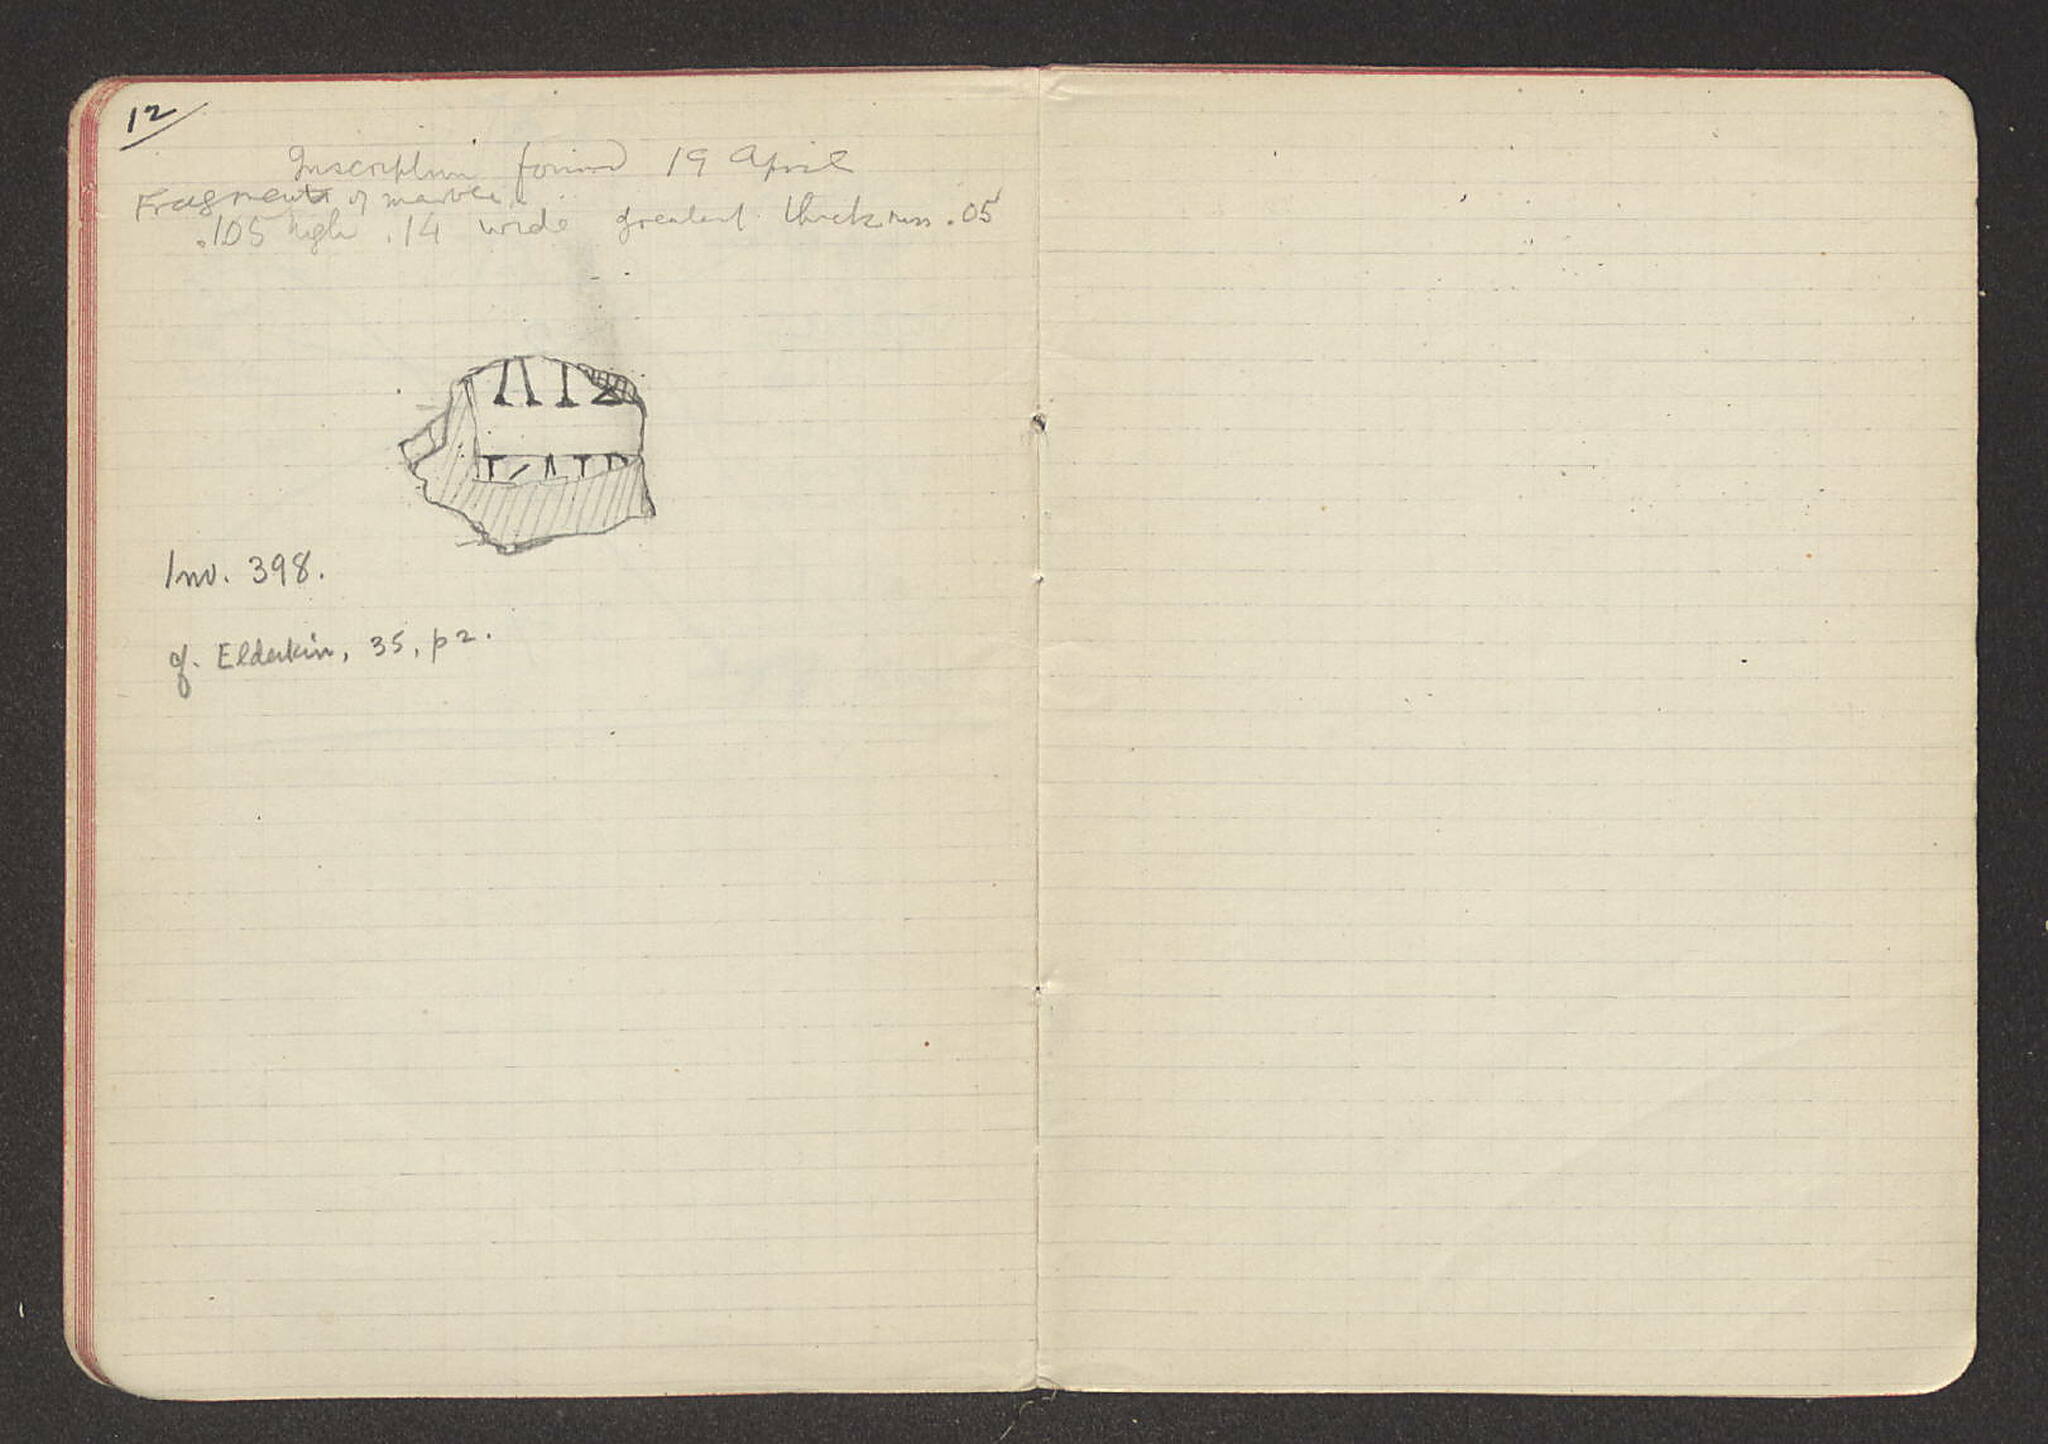 12
Inscription found 19 April
Fragment of marble
.105 high .14 wide greatest thickness .05
Inv. 398.
cf. Elderkin, 35, p 2.